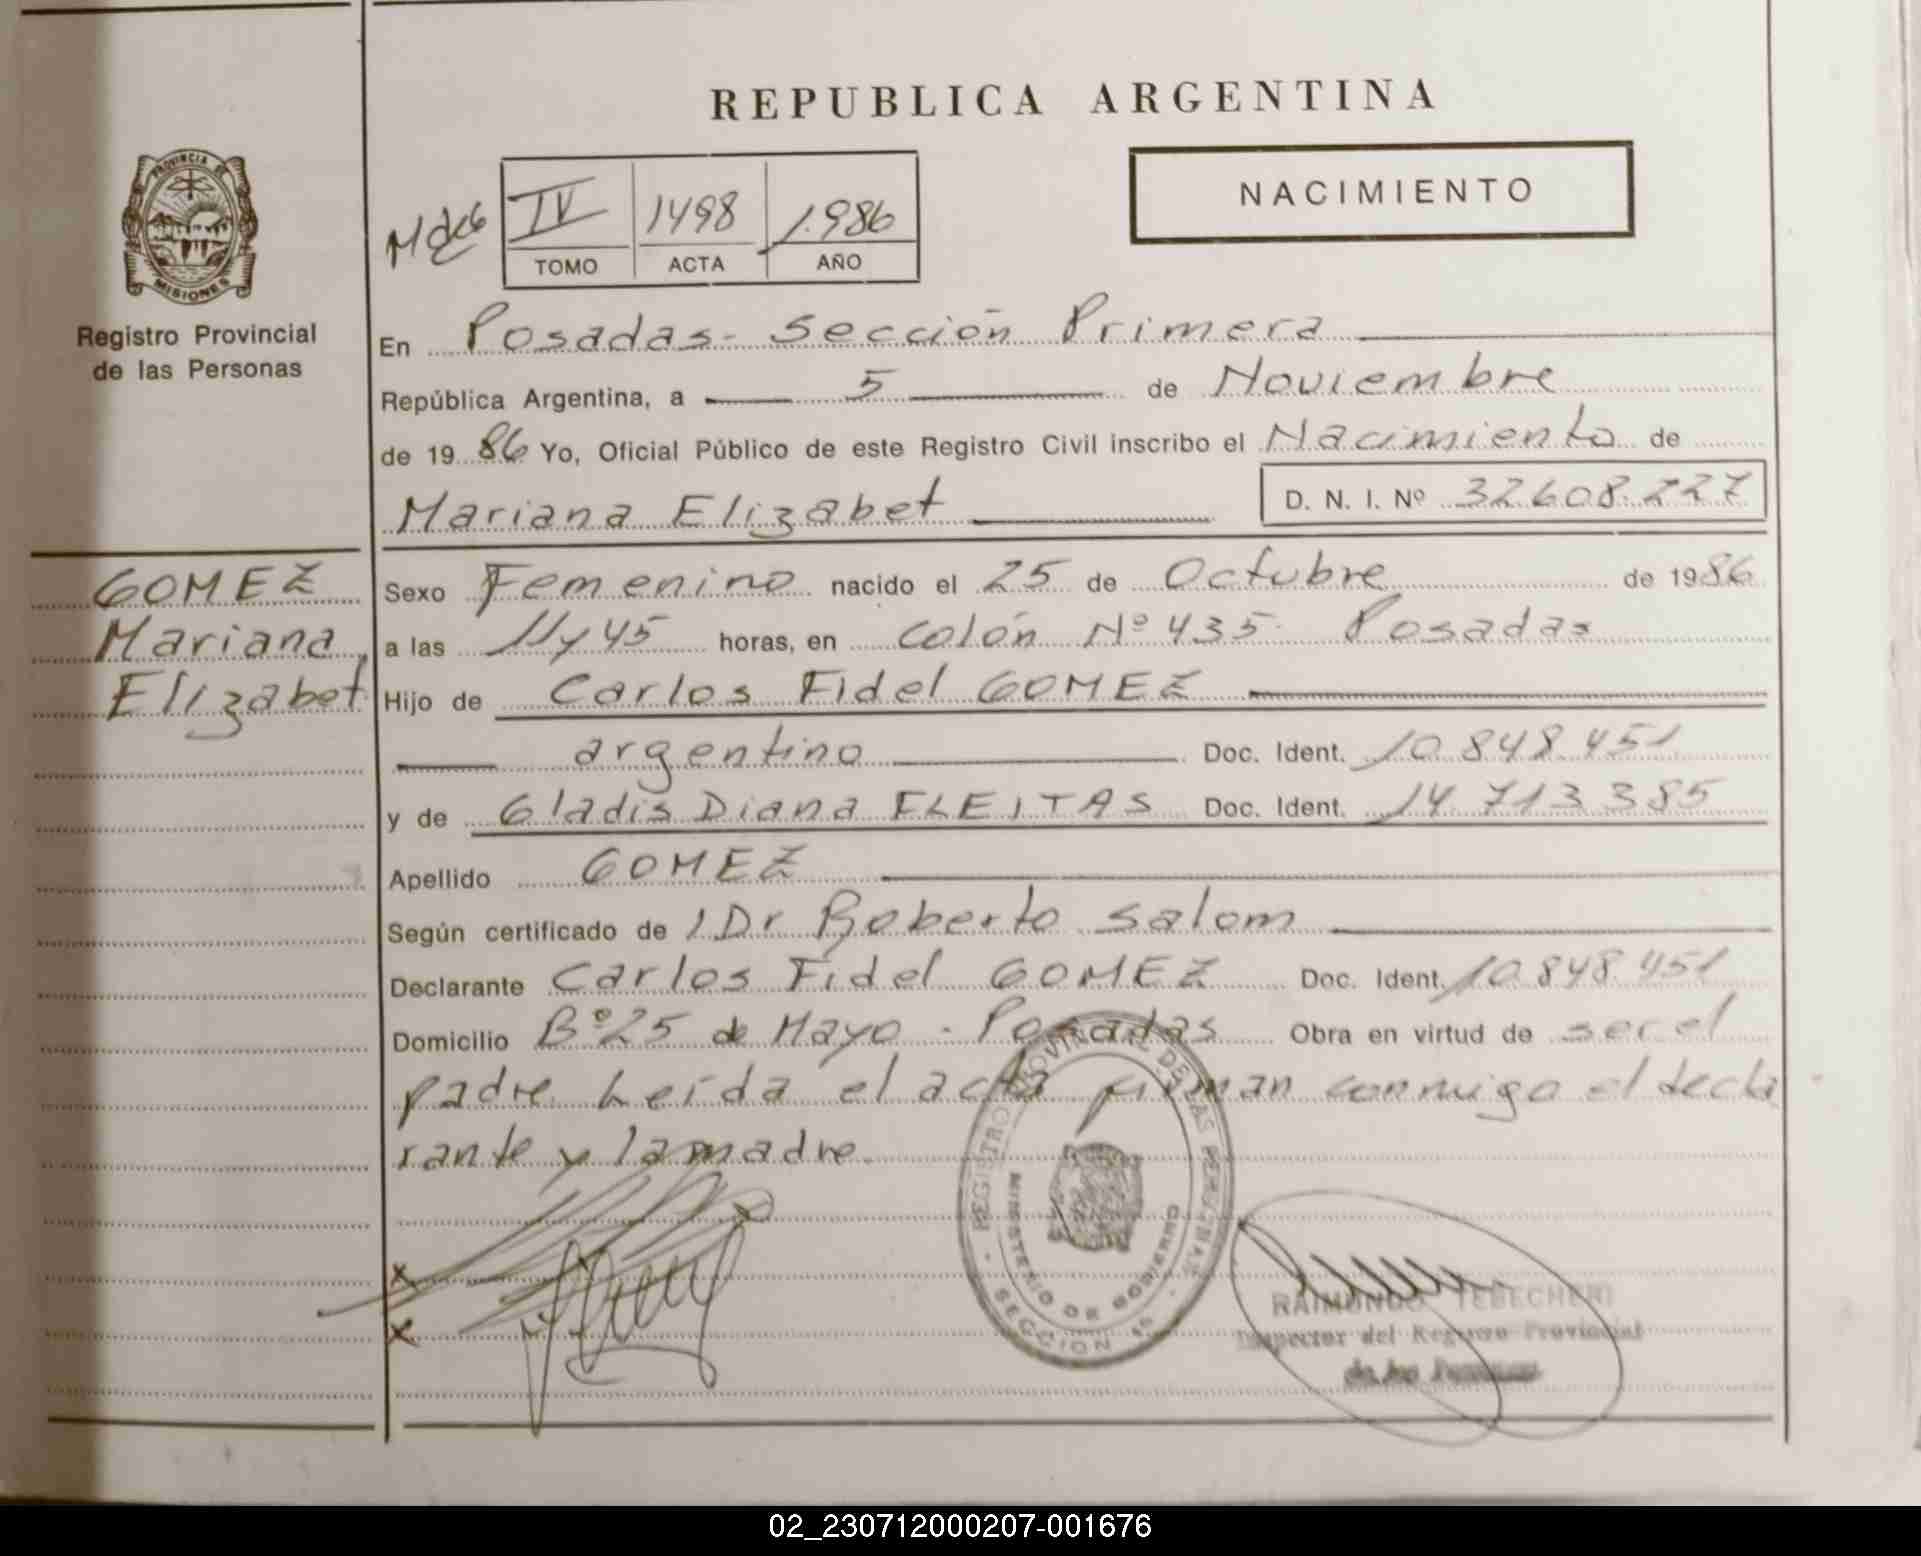 REPUBLICA ARGENTINA
NACIMIENTO
PROVINCIA DE
MISIONES
Registro Provincial
de las Personas
IV 1498 1.986
TOMO ACTA AÑO
En Posadas - Sección Primera
República Argentina, a 5 de Noviembre
de 19 86 Yo, Oficial Público de este Registro Civil inscribo el Nacimiento de
Mariana Elizabet D. N. I. Nº 32.608.227
GOMEZ
Mariana
Elizabet
Sexo Femenino nacido el 25 de Octubre de 1986
a las 11 y 45 horas, en Colón Nº 435 Posadas
Hijo de Carlos Fidel GOMEZ
argentino Doc. Ident. 10.848.451
y de Gladis Diana FLEITAS Doc. Ident. 14.713.385
Apellido GOMEZ
Según certificado de l Dr Roberto Salom
Declarante Carlos Fidel GOMEZ Doc. Ident. 10.848.451
Domicilio Bº 25 de Mayo - Posadas Obra en virtud de ser el
padre. Leída el acta firman conmigo el decla
rante y la madre.
REGISTRO PROVINCIAL DE LAS PERSONAS
MINISTERIO DE GOBIERNO
SECCION
RAIMUNDO TEBECHERI
Inspector del Registro Provincial
de las Personas
02_230712000207-001676